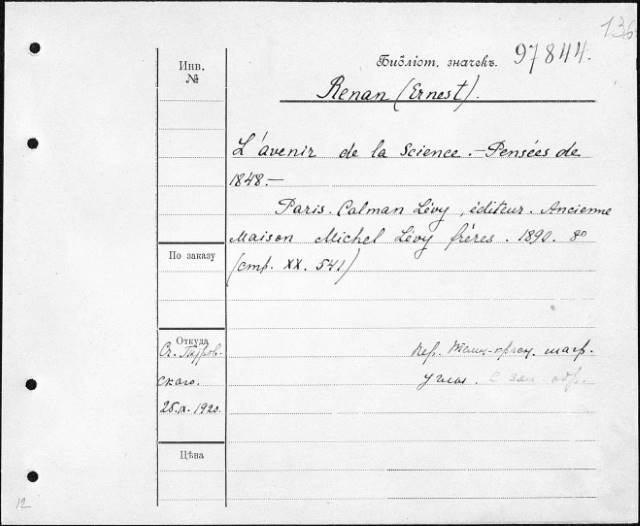 136
Инв.
№
Библіот. значекъ. 97844.
Renan (Ernest).
L'avenir de la Science. — Pensées de
1848. —
Paris. Calman Lévy, éditeur. Ancienne
Maison Michel Lévy frères. 1890. 8º
(стр. XX. 541)
По заказу
Откуда
ского.
25.IX.1920.
Пер.
углы. С
Цѣна
12